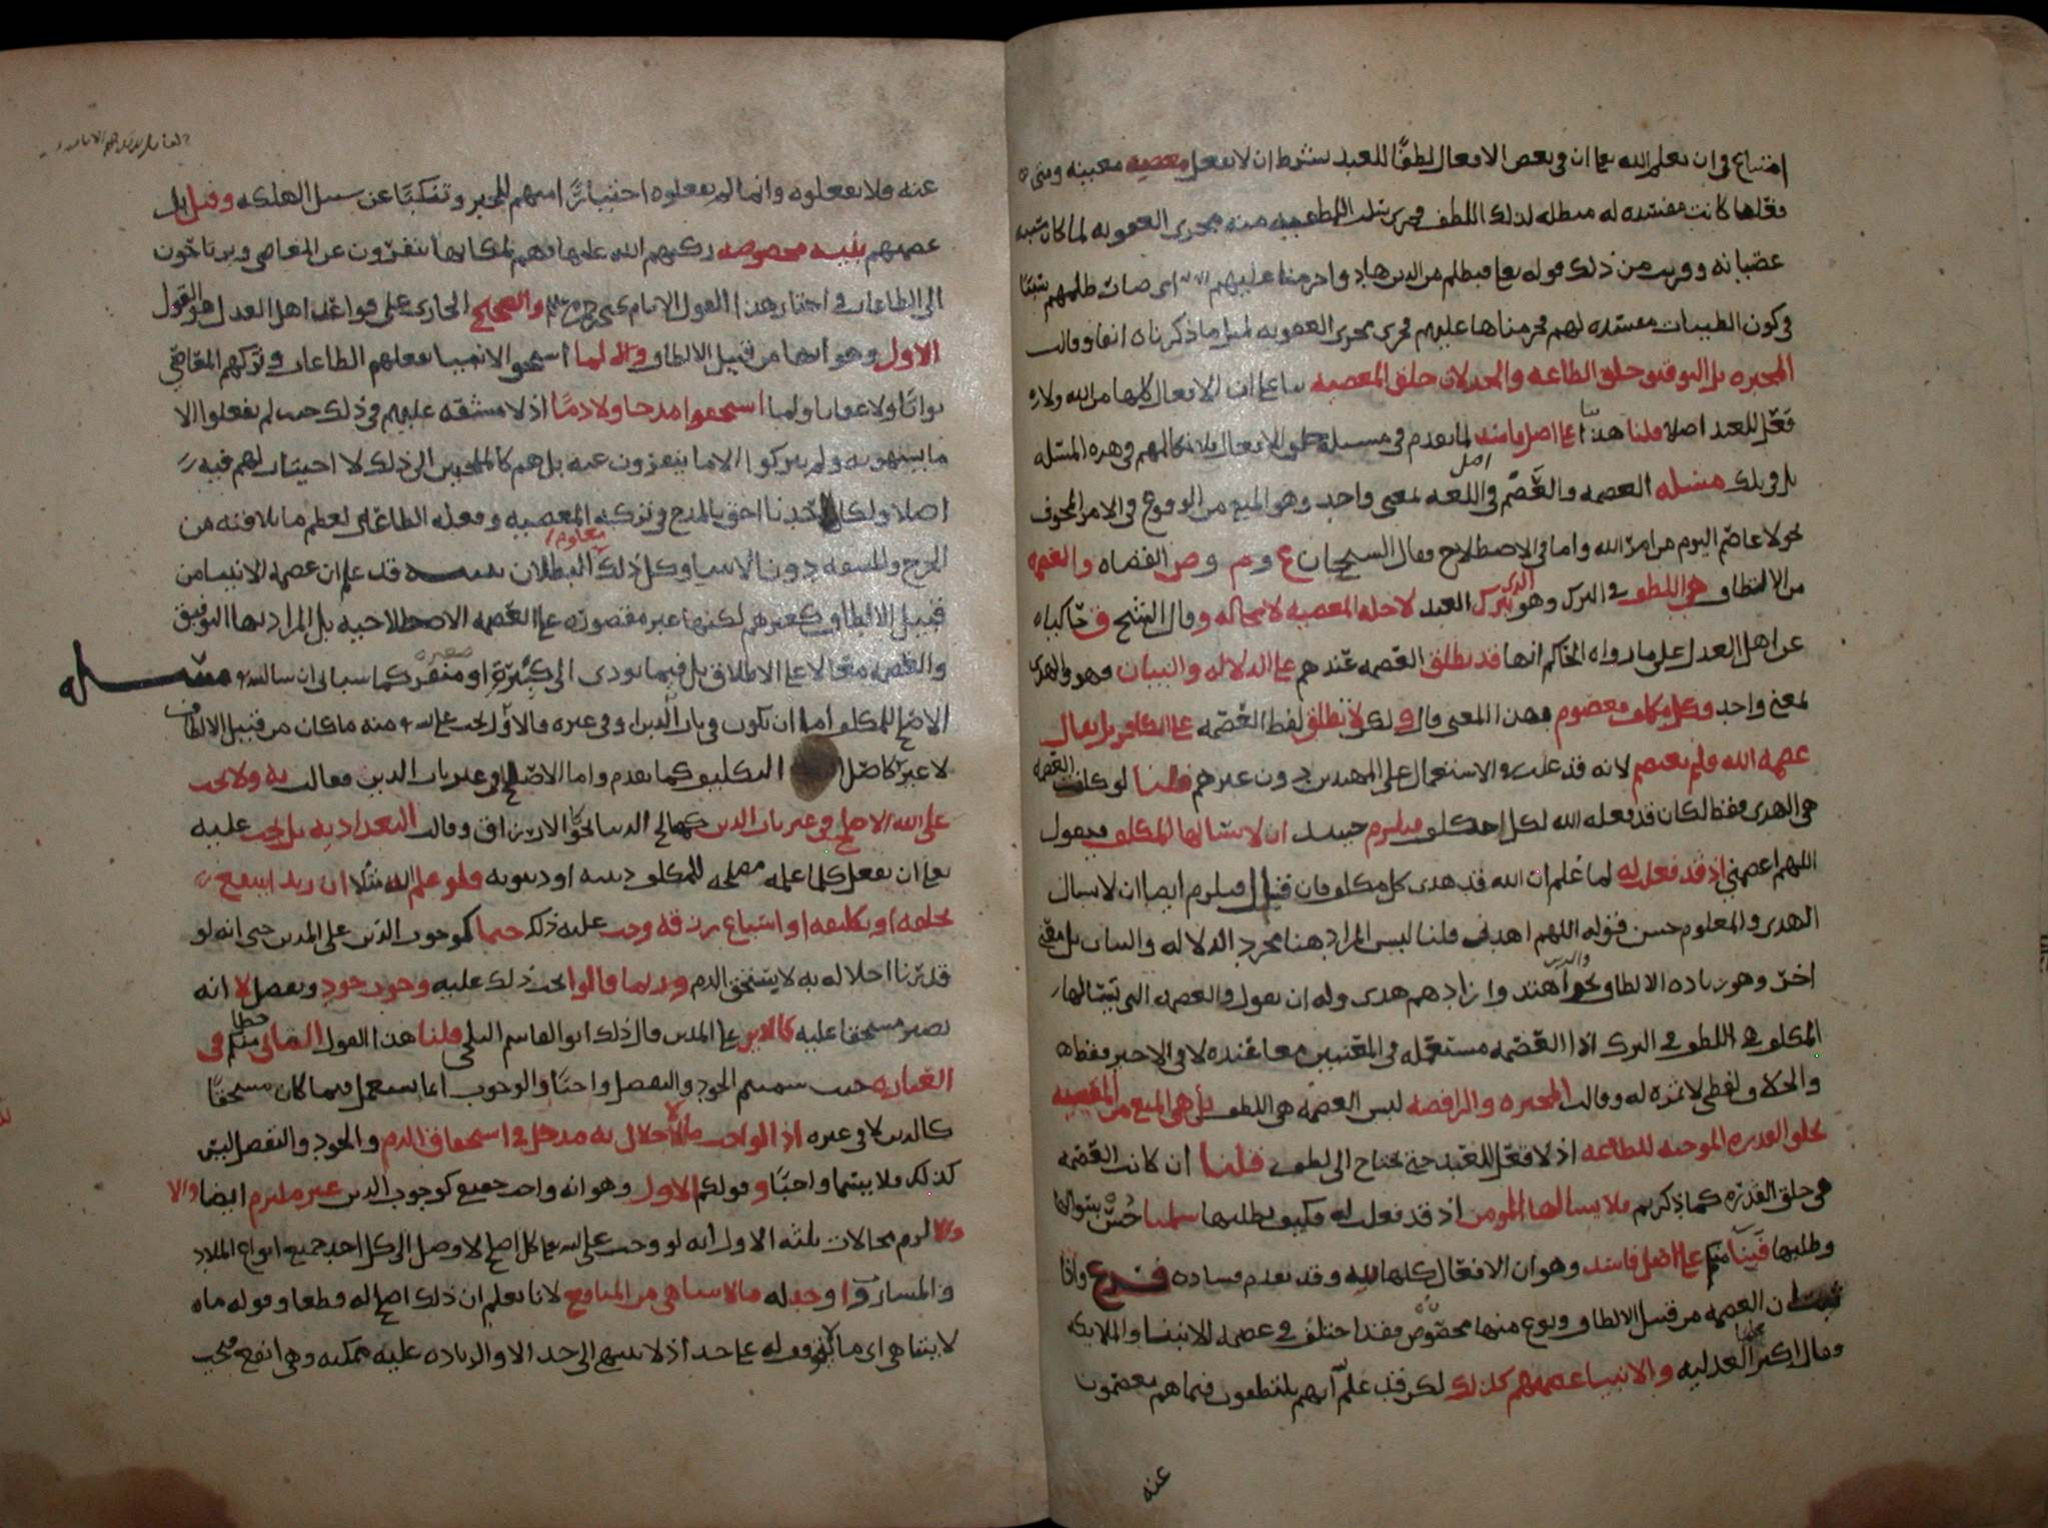 امتناع في ان يعلم الله تعا ان في بعض الافعال لطفًا للعبد بشرط ان لا يفعل معصيه معينه ومتى
فعلها كانت مفسده له مبطله لذلك اللطف فجرى سلب اللطف منه مجرى العقوبه لما كان سببه
عصيانه وقريب من ذلك قوله تعا فبظلم من الذين هادوا حرمنا عليهم اي صار ظلمهم سببًا
في كون الطيبات مفسده لهم فحرمناها عليهم فجرى مجرى العقوبه لمثل ما ذكرناه انفا وقالت
المجبره بل التوفيق خلق الطاعه والخذلان خلق المعصيه بنا على ان الافعال كلها من الله ولا
فعل للعبد اصلا قلنا هذا بنا على اصل فاسد لما تقدم في مسئله خلق الافعال فلا نكالمهم في هذه المسئله
بل في تلك مسئله العصمه والعصم في اصل اللغه بمعنى واحد وهو المنع من الوقوع في الامر المخوف
نحو لا عاصم اليوم من امر الله واما في الاصطلاح فقال الشيخان ع و م و ص القضاه والعصمه
من الالطاف هي اللطف في الترك وهو الذي يترك العبد لاجله المعصيه لا محاله وقال الشيخ
عن اهل العدل على ما رواه الحاكم انها قد تطلق العصمه عندهم على الدلاله والبيان فهو والهدى
بمعنى واحد وكل مكلف معصوم بهذا المعنى قال ولكن لا نطلق لفظ العصمه على الكافر بل يقال
عصمه الله فلم يعتصم لانه قد غلب في الاستعمال على المهتدين دون غيرهم قلنا لو كانت العصمه
هي الهدى فقط لكان قد فعله الله لكل احد مكلف فيلزم حينئذ ان لا يسالها المكلف فيقول
اللهم اعصمني اذ قد فعل له لما علم ان الله قد هدى كل مكلف فان قيل فيلزم ايضا ان لا يسال
الهدى والمعلوم حسن قوله اللهم اهدني قلنا ليس المراد هنا مجرد الدلاله والبيان بل معنى
اخر وهو زياده الالطاف نحو والذين اهتدوا زادهم هدى وله ان يقول والعصمه التي يسالها
المكلف هي اللطف في الترك اذا العصمه مستعمله في المعنيين معا عنده لا في الاخير فقط
والخلاف لفظي لا ثمره له وقالت المجبره والرافضه ليس العصمه هي اللطف بل هي المنع من المعصيه
بخلق القدره الموجبه للطاعه اذ لا فعل للعبد حتى يحتاج الى لطف قلنا ان كانت العصمه
هي خلق القدره كما ذكرتم فلا يسالها المومن اذ قد فعلت له فكيف يطلبها سلمنا حسن سوالها
وطلبها فبنا منكم على اصل فاسد وهو ان الافعال كلها لله وقد تقدم فساده فرع واذا
ان العصمه من قبيل الالطاف ونوع منها مخصوص فقد اختلف في عصمه الانبيا والملايكه
وقال اكثر العدليه والانبيا عصمتهم كذلك لكن قد علم انهم يلتطفون فيما هم يعصمون
عنه
عنه فلا يفعلوه وانما لم يفعلوه اختيارًا منهم للخير وتنكبًا عن سبيل الهلكه وقيل بل
عصمهم ببنيه مخصوصه ركبهم الله عليها فهم لمكانها ينفرون عن المعاصي ويرتاحون
الى الطاعات في اختار هذا القول الامام والصحيح الجاري على قواعد اهل العدل هو القول
الاول وهو انها من قبيل الالطاف والا لما استحق الانبيا بفعلهم الطاعات وتركهم المعاصي
ثوابًا ولا عقابا ولما استحقوا مدحا ولا ذمًا اذ لا مشقه عليهم في ذلك حيث لم يفعلوا الا
ما يشتهونه ولم يتركوا الا ما ينفرون عنه بل هم كالملجين الى ذلك لا اختيار لهم فيه
اصلا ولكان احدنا احق بالمدح في تركه المعصيه وفعله الطاعه لعظم ما يلاقيه من
الحرج والمشقه دون الانبيا وكل ذلك معلوم البطلان تنبيه قد علم ان عصمه الانبيا من
قبيل الالطاف كغيرهم لكنها غير مقصوره على العصمه الاصطلاحيه بل المراد بها التوفيق
والعصمه معا لا على الاطلاق بل فيما يودي الى كبيرة او صغيره منفره كما سياتي ان شا الله مسئله
الاصلح للمكلف اما ان يكون في باب الدين او في غيره فالاول يجب على الله منه ما كان من قبيل الالطاف
لا غير كاصل التكليف كما تقدم واما الاصلح في غير باب الدين فقالت به ولا يجب
على الله الاصلح في غير باب الدين كمصالح الدنيا نحو الارزاق وقالت البغداديه بل يجب عليه
تعا ان يفعل كلما علمه مصلحه للمكلف دينيه او دنيويه فلو علم الله مثلا ان زيدا ينتفع
بخلقه او تكليفه او اتساع رزقه وجب عليه ذلك حتما كوجوب الدين على المدين حتى انه لو
قدرنا اخلاله به لاستحق الذم وربما قالوا يجب ذلك عليه وجوب جود وتفضل لا انه
يصير مستحقا عليه كالدين على المدين قال ذلك ابو القاسم البلخي قلنا هذا القول الثاني خطا منكم في
العباره حيث سميتم الجود والتفضل واجبًا والوجوب انما يستعمل فيما كان مستحقًا
كالدين لا في غيره اذ الواجب ما للاخلال به مدخل في استحقاق الذم والجود والتفضل ليس
كذلك فلا يسما واجبًا وقولكم الاول وهو انه واجب جميع كوجوب الدين غير ملتزم ايضا والا
والا لزم محالات ثلثه الاول انه لو وجب على الله تعا كل اصلح لاوصل الى كل احد جميع انواع الملاذ
والمسار واوجد له ما لا يتناهى من المنافع لانا نعلم ان ذلك اصلح له قطعا وقوله ماه
لا يتناهى اي ما لا يقف على حد اذ لا ينتهي الى حد الا والزياده عليه ممكنه وهي انفع فيجب